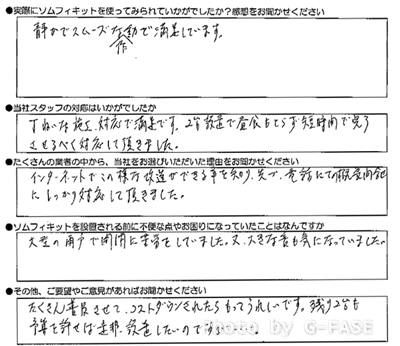 ●実際にソムフィキットを使ってみられていかがでしたか?感想をお聞かせください
静かでスムーズな動作で満足しています。
●当社スタッフの対応はいかがでしたか
丁ねいな施工、対応で満足です。2台設置で昼食もとらず短時間で完了
させるべく対応して頂きました。
●たくさんの業者の中から、当社をお選びいただいた理由をお聞かせください
インターネットでこの様な改造ができる事を知り、
にしっかり対応して頂きました。
●ソムフィキットを設置される前に不便な点やお困りになっていたことはなんですか
大型の雨戸で開閉に苦労をしていました。又、大きな音も気になっていました。
●その他、ご要望やご意見があればお聞かせください
たくさん普及させて、コストダウンされたらもっとうれしいです。残り2台も
予算を許せば是非、設置したいのですが
Photo by G-FASE